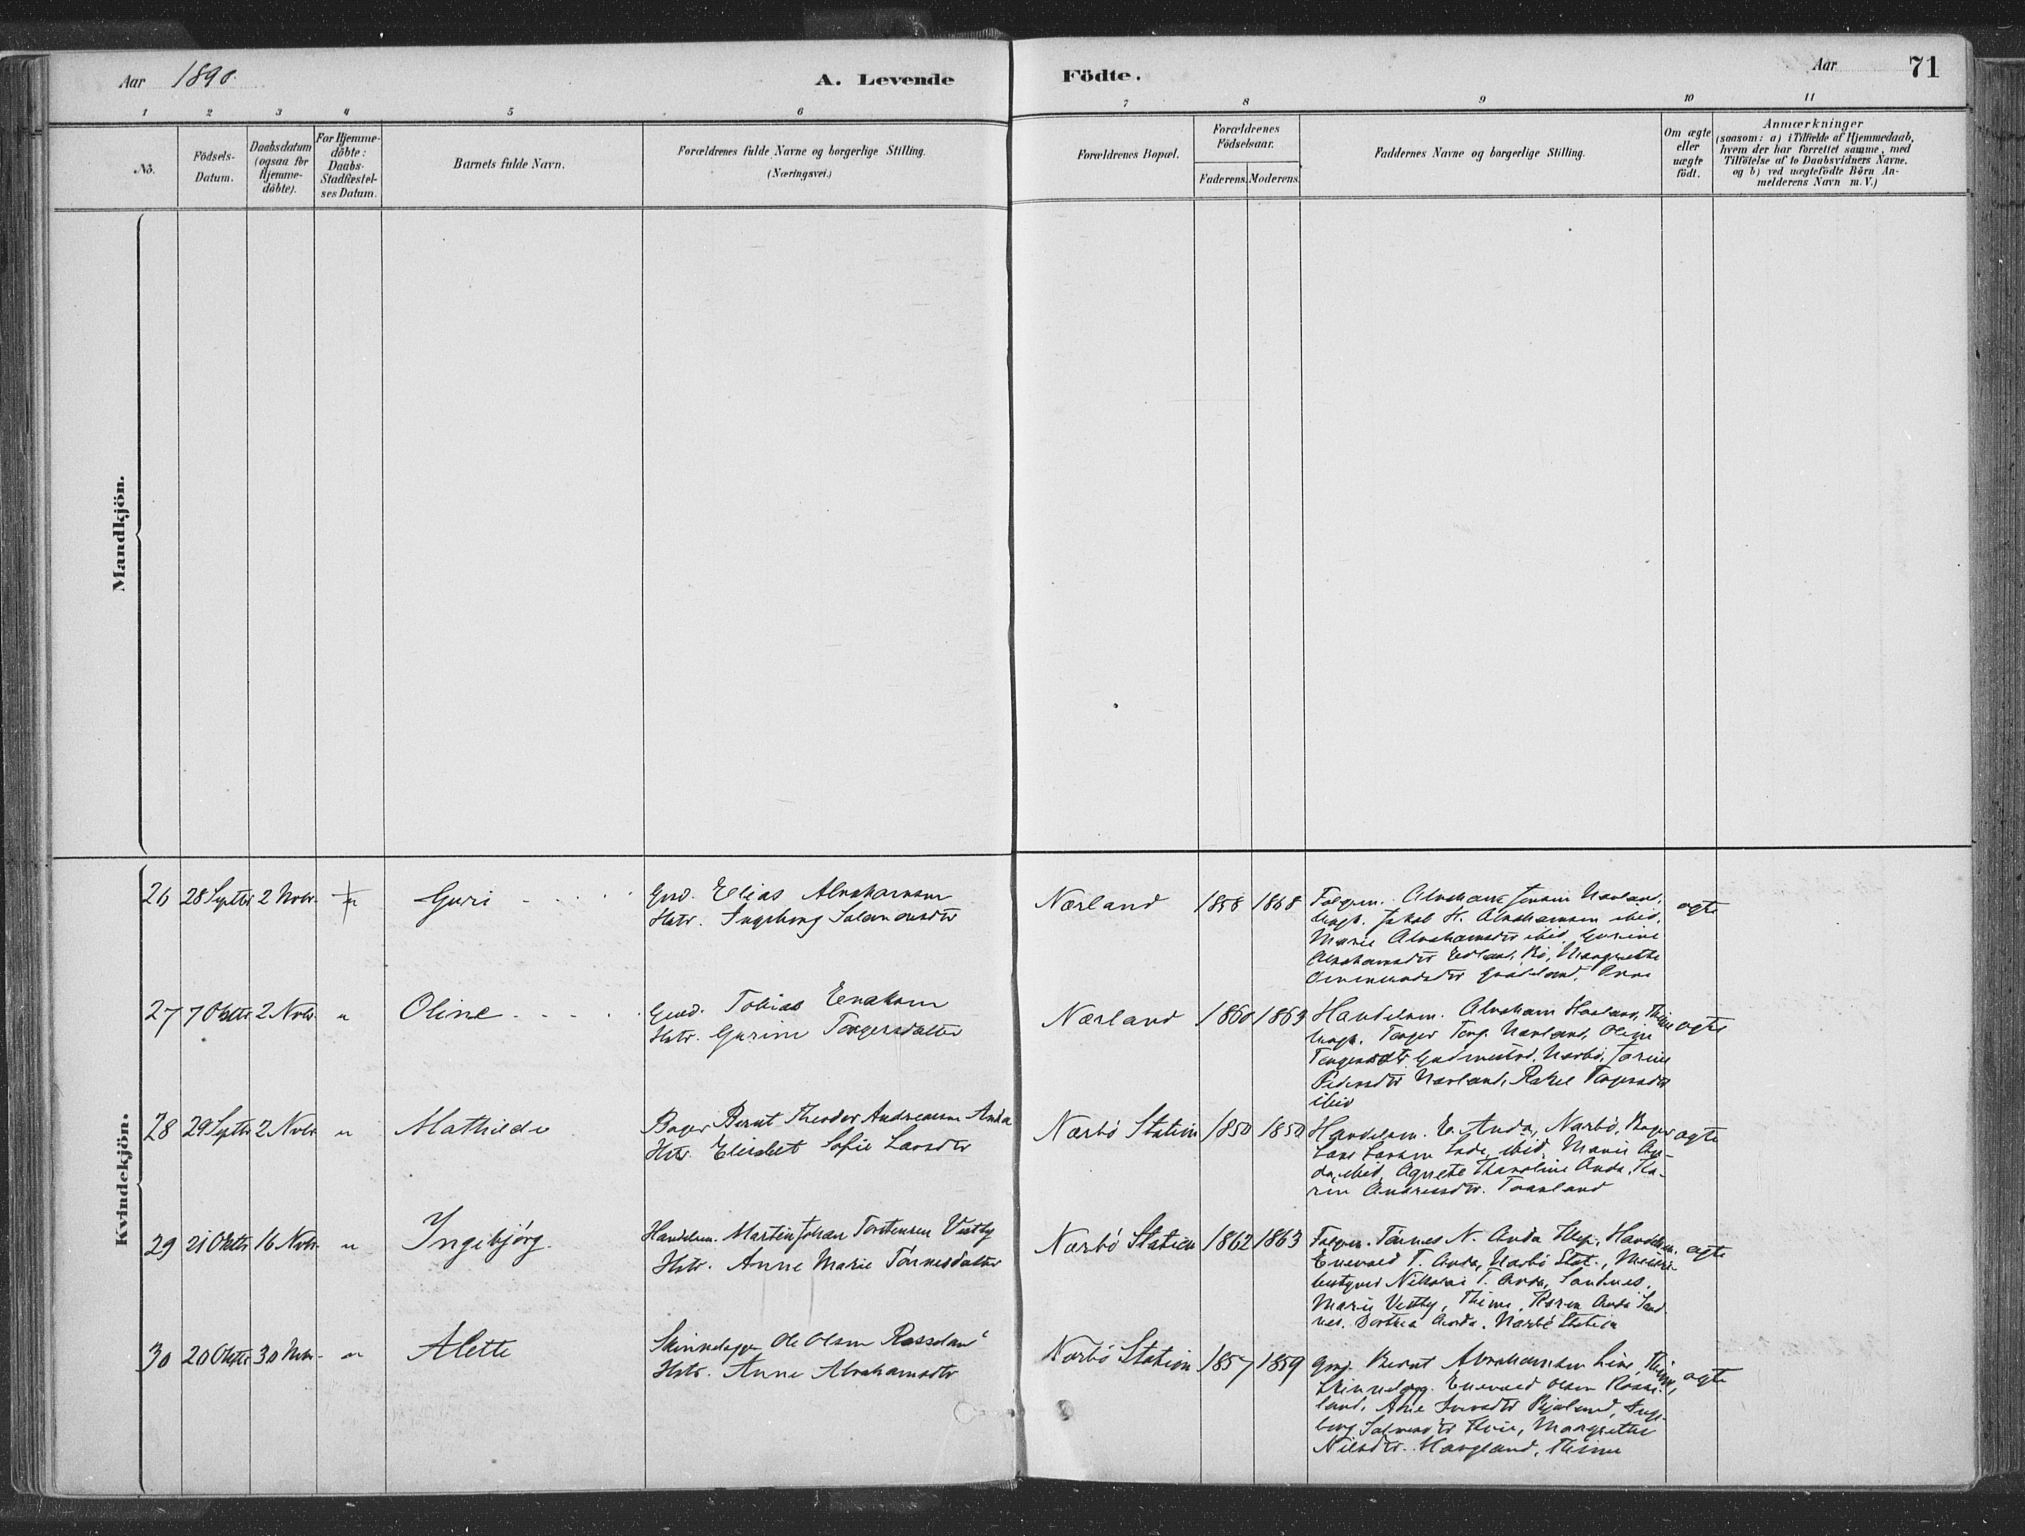 Aar 1890.
A. Levende Födte.
Aar
71
1 2 3 4 5 6 7 8 9 10 11
No.
Födsels-
Datum.
Daabsdatum
(ogsaa for
Hjemme-
döbte).
For Hjemme-
döbte:
Daabs-
Stadfæstel-
ses Datum.
Barnets fulde Navn.
Forældrenes fulde Navne og borgerlige Stilling.
(Næringsvei.)
Forældrenes Bopæl.
Forældrenes
Födselsaar.
Faderens. Moderens.
Faddernes Navne og borgerlige Stilling.
Om ægte
eller
uægte
födt.
Anmærkninger
(saasom: a) i Tilfælde af Hjemmedaab,
hvem der har forrettet samme, med
Tilföielse af to Daabsvidners Navne.
og b) ved uægtefödte Börn An-
melderens Navn m.V.)
Mandkjön.
Kvindekjön.
26 28 Septbr 2 Novbr. Guri
Gmd. Elias Abrahamsen
Hstr. Ingeborg Salamonsdtr
Nærland 1858 1868
Abraham Jensen Nærland,
Ungk. Jakob H. Abrahamsen ibid,
Marie Abrahamsdtr ibid, Gurine
Abrahamsdtr
ægte
27 7 Oktbr 2 Novbr. " Oline
Gmd. Tobias Enoksen
Hstr. Gurine Torgersdatter
Nærland 1860 1863
Handelsm. Abraham Haaland, Thime
Ungk. Torger Torg. Nærland, Oline
Torgersdtr Nærbö,
Pedersdtr Nærland, Rakel Torgersdtr
ibid
ægte
28 29 Septbr 2 Novbr " Mathilde
Bager Bernt Theodor Andreassen Anda
Hstr. Elisabet Sofie Larsdtr
Nærbö Station 1850 1850
Handelsm. E. Anda, Nærbö, Bager
Lars Larsen ibid, Marie An-
da, ibid, Agnete Anda, Ka-
ren Andreasdtr.
ægte
29 21 Oktbr 16 Novbr. " Ingebjörg.
Handelsm. Martin Johan Torstensen Vestby
Hstr. Anne Marie Tönnesdatter
Nærbö Station 1862 1863
Tönnes N. Anda Klep, Handelsm.
Enevald T. Anda, Nærbö Stat., Meieri-
bestyrer Nikolai T. Anda, Sandnes,
Marie Vestby, Thime, Karen Anda Sand-
nes, Dorthea Anda, Nærbö Station
ægte
30 20 Oktbr 30 Novbr. " Alette
Skinnelægger Ole Olsen Rosseland
Hstr. Anne Abrahamsdtr
Nærbö Station 1857 1859
Gmd. Bernt Abrahamsen Line, Thime,
Skinnelægg. Enevald Olsen Rosse-
land, Inge-
borg Margrethe
Nilsdtr. Haugland, Thime
ægte